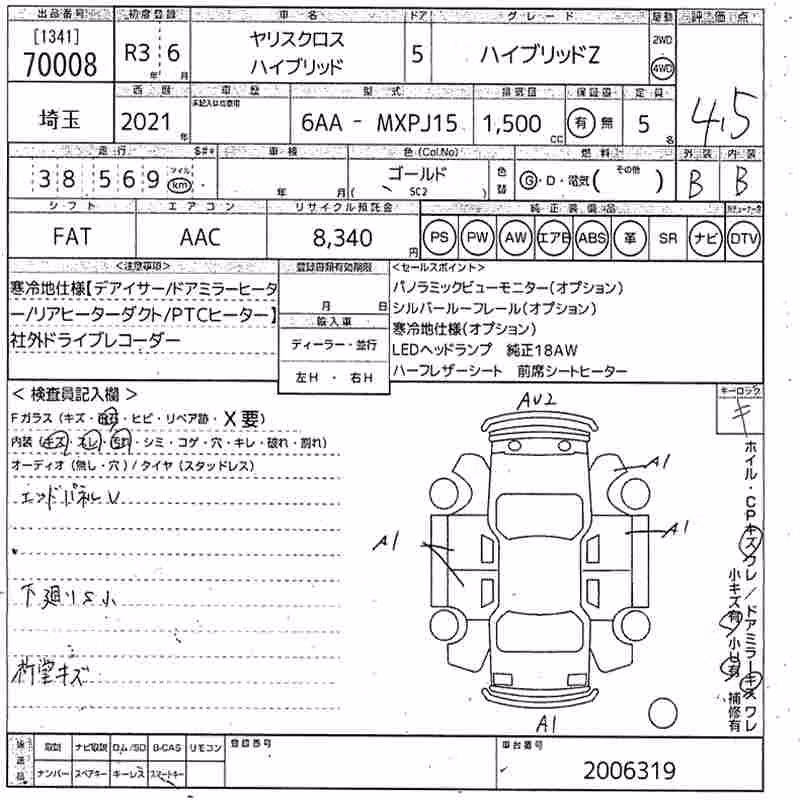 出品番号 初度登録 車名 ドア グレード 駆動 評価点
[1341]
70008
R3年 6月
ヤリスクロス
ハイブリッド
5
ハイブリッドZ
2WD
4WD
4.5
西暦 車歴 型式 排気量 保証書 定員
埼玉
2021年
未記入は自家用
6AA - MXPJ15
1,500cc
有 無
5名
走行 S#* 車検 色(Col.No) 燃料 外装 内装
38,569 マイル km
年 月
ゴールド
( SC2 )
色替
G・D・電気( その他 )
B B
シフト エアコン リサイクル預託金 純正装備品
FAT AAC 8,340円
PS PW AW エアB ABS 革 SR ナビ DTV
<注意事項>
寒冷地仕様【デアイサー/ドアミラーヒータ
ー/リアヒーターダクト/PTCヒーター】
社外ドライブレコーダー
登録書類有効期限
月 日
輸入車
ディーラー・並行
左H・右H
<セールスポイント>
パノラミックビューモニター(オプション)
シルバールーフレール(オプション)
寒冷地仕様(オプション)
LEDヘッドランプ 純正18AW
ハーフレザーシート 前席シートヒーター
<検査員記入欄>
Fガラス(キズ・飛石・ヒビ・リペア跡・X要)
内装(キズ・スレ・汚れ・シミ・コゲ・穴・キレ・破れ・割れ)
オーディオ(無し・穴)/タイヤ(スタッドレス)
エンドパネルU
下廻りS小
荷室キズ
キーロック
キ
AU2
A1
A1
A1
A1
ホイル・CPキズワレ/ドアミラーキズワレ
小キズ有/小U有 補修有
後送品
取説 ナビ取説 ロム/SD B-CAS リモコン
ナンバー スペアキー キーレス スマートキー
登録番号
車台番号
2006319